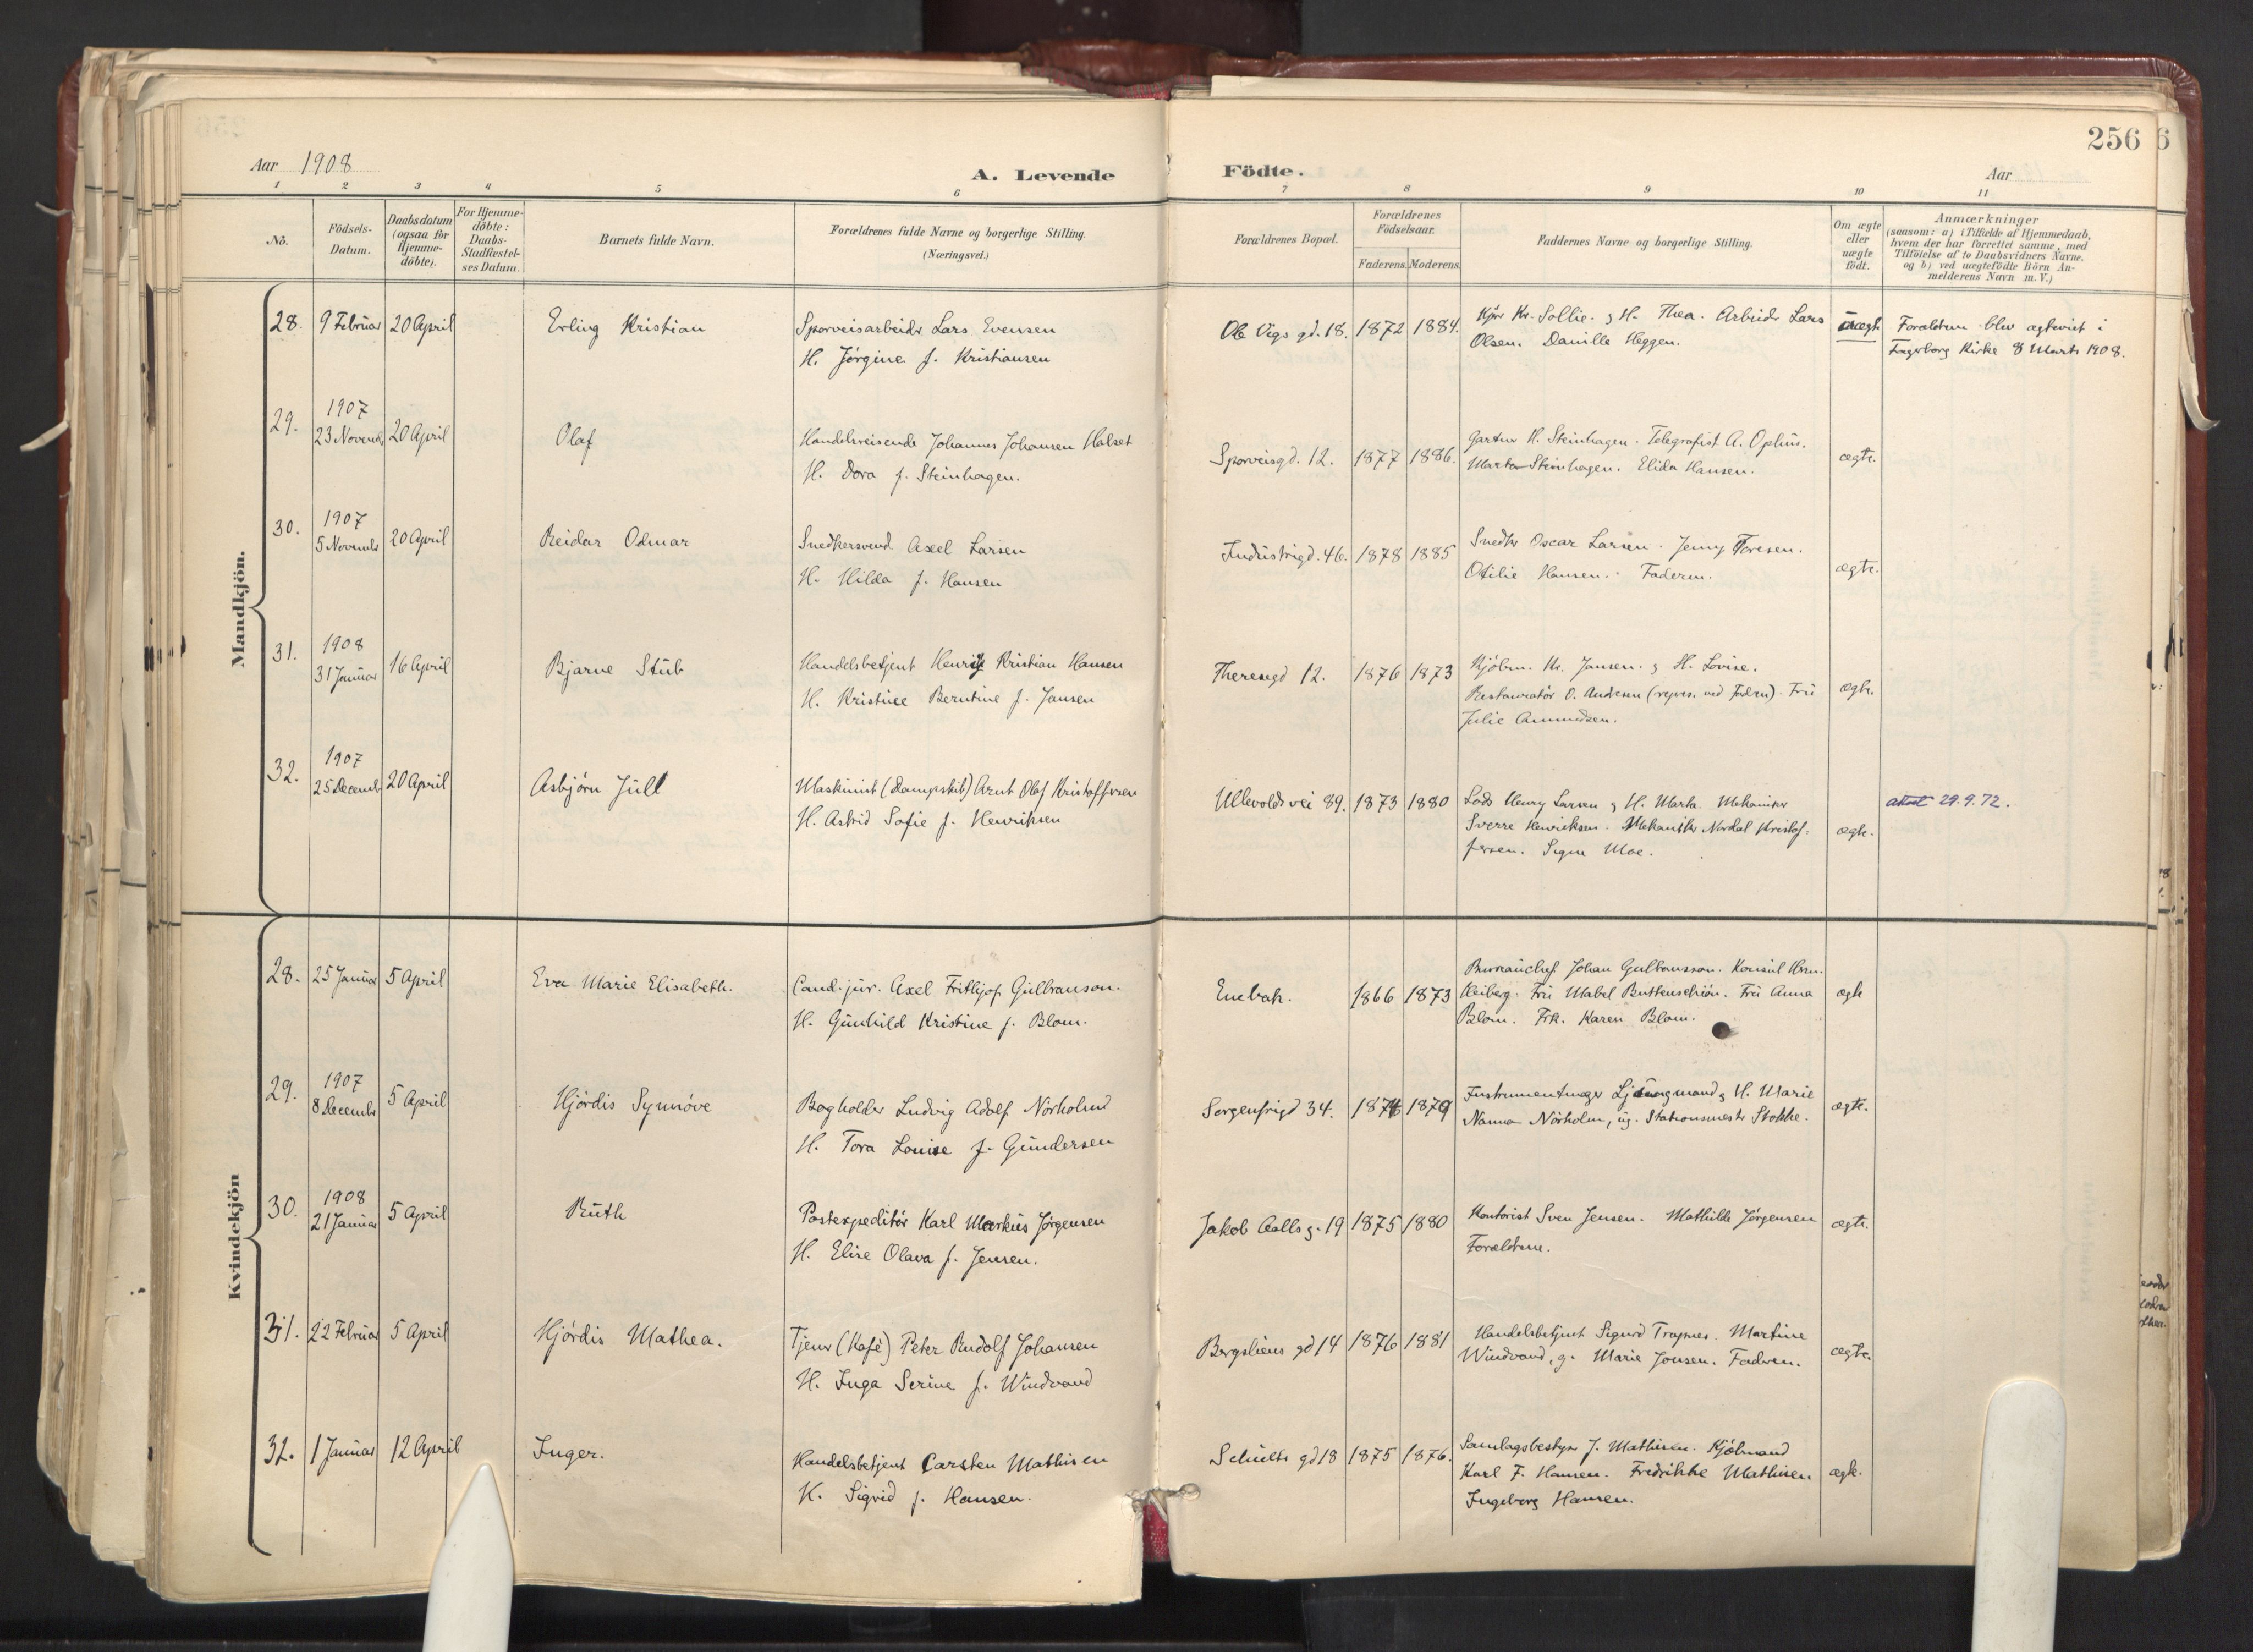 256
Aar 1908
A. Levende
Födte.
Aar
1 2 3 4 5 6 7 8 9 10 11
Nò.
Födsels-
Datum.
Daabsdatum
(ogsaa for
Hjemme-
döbte).
For Hjemme-
döbte:
Daabs-
Stadfæstel-
ses Datum.
Barnets fulde Navn.
Forældrenes fulde Navne og borgerlige Stilling.
(Næringsvei.)
Forældrenes Bopæl.
Forældrenes
Födselsaar.
Faderens. Moderens.
Faddernes Navne og borgerlige Stilling.
Om ægte
eller
uægte
födt.
Anmærkninger
(saasom: a) i Tilfælde af Hjemmedaab,
hvem der har forrettet samme, med
Tilföielse af to Daabsvidners Navne.
og b) ved uægtefödte Börn An-
melderens Navn m. V.)
Mandkjön.
28. 9 Februar 20 April
Erling Kristian
Sporveisarbeider Lars Evensen
H. Jörgine f. Kristiansen
Ole Vigs gd. 18. 1872 1884.
Kjör Kr. Sollie. & H. Thea. Arbeider Lars
Olsen. Danille Heggen.
uægte
Forældrene blev ægteviet i
Fagerborg Kirke 8 Marts 1908.
29. 1907
23 November 20 April
Olaf
Handelsreisende Johannes Johansen Halset
H. Dora f. Steinhagen.
Sporveisgd. 12. 1877 1886.
Gartner H. Steinhagen. Telegrafist A. Ophus.
Marta Steinhagen. Elida Hansen.
ægte.
30. 1907
5 November 20 April
Reidar Odmar
Snedkersvend Axel Larsen
H. Hilda f. Hansen
Industrigd. 46. 1878 1885
Snedker Oscar Larsen. Jenny Toresen.
Otilie Hansen. Faderen.
ægte.
31. 1908
31 Januar 16 April
Bjarne Stub
Handelsbetjent Henrij Kristian Hansen
H. Kristine Berntine f. Jansen
Theresegd 12. 1876 1873
Kjöbm. Kr. Jansen. & H. Lovise.
Restauratör O. Andresen (repres. ved Faderen). Fru
Julie Amundsen.
ægte.
32. 1907
25 December 20 April
Asbjörn Jull
Maskinist (Dampskib) Arnt Olaf Kristoffersen
H. Astrid Sofie f. Henriksen
Ullevoldsvei 89. 1873 1880
Lods Henry Larsen & H. Marta. Mekaniker
Sverre Henriksen. Mekaniker Nordal Kristof-
fersen. Signe Moe.
ægte.
attest 29.9.72.
Kvindekjön
28. 25 Januar 5 April
Eva Marie Elisabeth.
Cand. jur. Axel Frithjof Gulbranson.
H. Gunhild Kristine f. Blom.
Enebak. 1866 1873
Bureauchef Johan Gulbransson. Konsul Hrm.
Heiberg. Fru Mabel Buttenschiön. Fru Anna
Blom. Frk. Karen Blom.
ægte
29. 1907
8 December 5 April
Hjördis Synnöve
Bogholder Ludvig Adolf Nörholm
H. Tora Louise f. Gundersen
Sorgenfrigd 34. 1874 1879
Instrumentmager Ljungmand & H. Marie
Nanna Nörholm, ug. Stationsmester Stokke.
ægte.
30. 1908
21 Januar 5 April
Ruth
Postexpeditör Karl Markus Jörgensen
H. Elise Olava f. Jensen.
Jakob Aalls g. 19 1875 1880
Kontorist Sven Jensen. Mathilde Jörgensen
Forældrene.
ægte.
31. 22 Februar 5 April
Hjördis Mathea.
Tjener (Kafé) Peter Rudolf Johansen
H. Inga Serine f. Windvand
Bergsliens gd 14 1876 1881
Handelsbetjent Sigurd Trapnes. Martine
Windvand, g. Marie Jonsen. Faderen.
ægte.
32. 1 Januar 12 April
Inger.
Handelsbetjent Carsten Mathisen
H. Sigrid f. Hansen.
Schults gd 18 1875 1876.
Samlagsbestyrer J. Mathisen. Kjölmand
Karl F. Hansen. Fredrikke Mathisen
Ingeborg Hansen.
ægte.